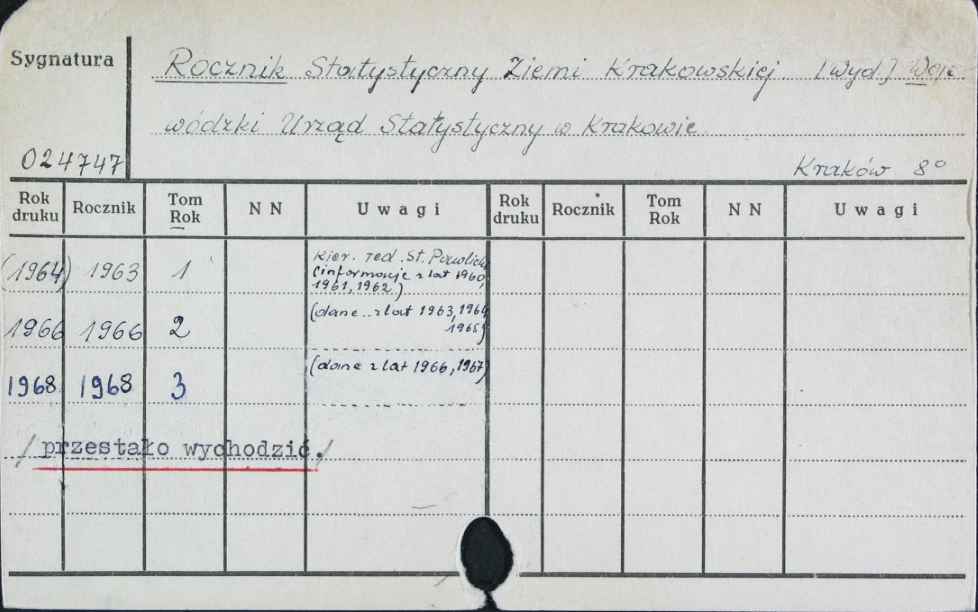 Sygnatura
Rocznik Statystyczny Ziemi Krakowskiej [Wyd.] Woje
wódzki Urząd Statystyczny w Krakowie
024747
Kraków 8°
Rok druku Rocznik Tom Rok N N Uwagi Rok druku Rocznik Tom Rok N N Uwagi
(1964) 1963 1 kier. red. St. Pawlicki
(informacje z lat 1960,
1961, 1962)
1966 1966 2 (dane z lat 1963, 1964,
1965)
1968 1968 3 (dane z lat 1966, 1967)
/przestało wychodzić./